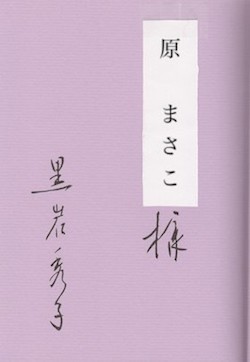 原 まさこ様
黒岩秀子